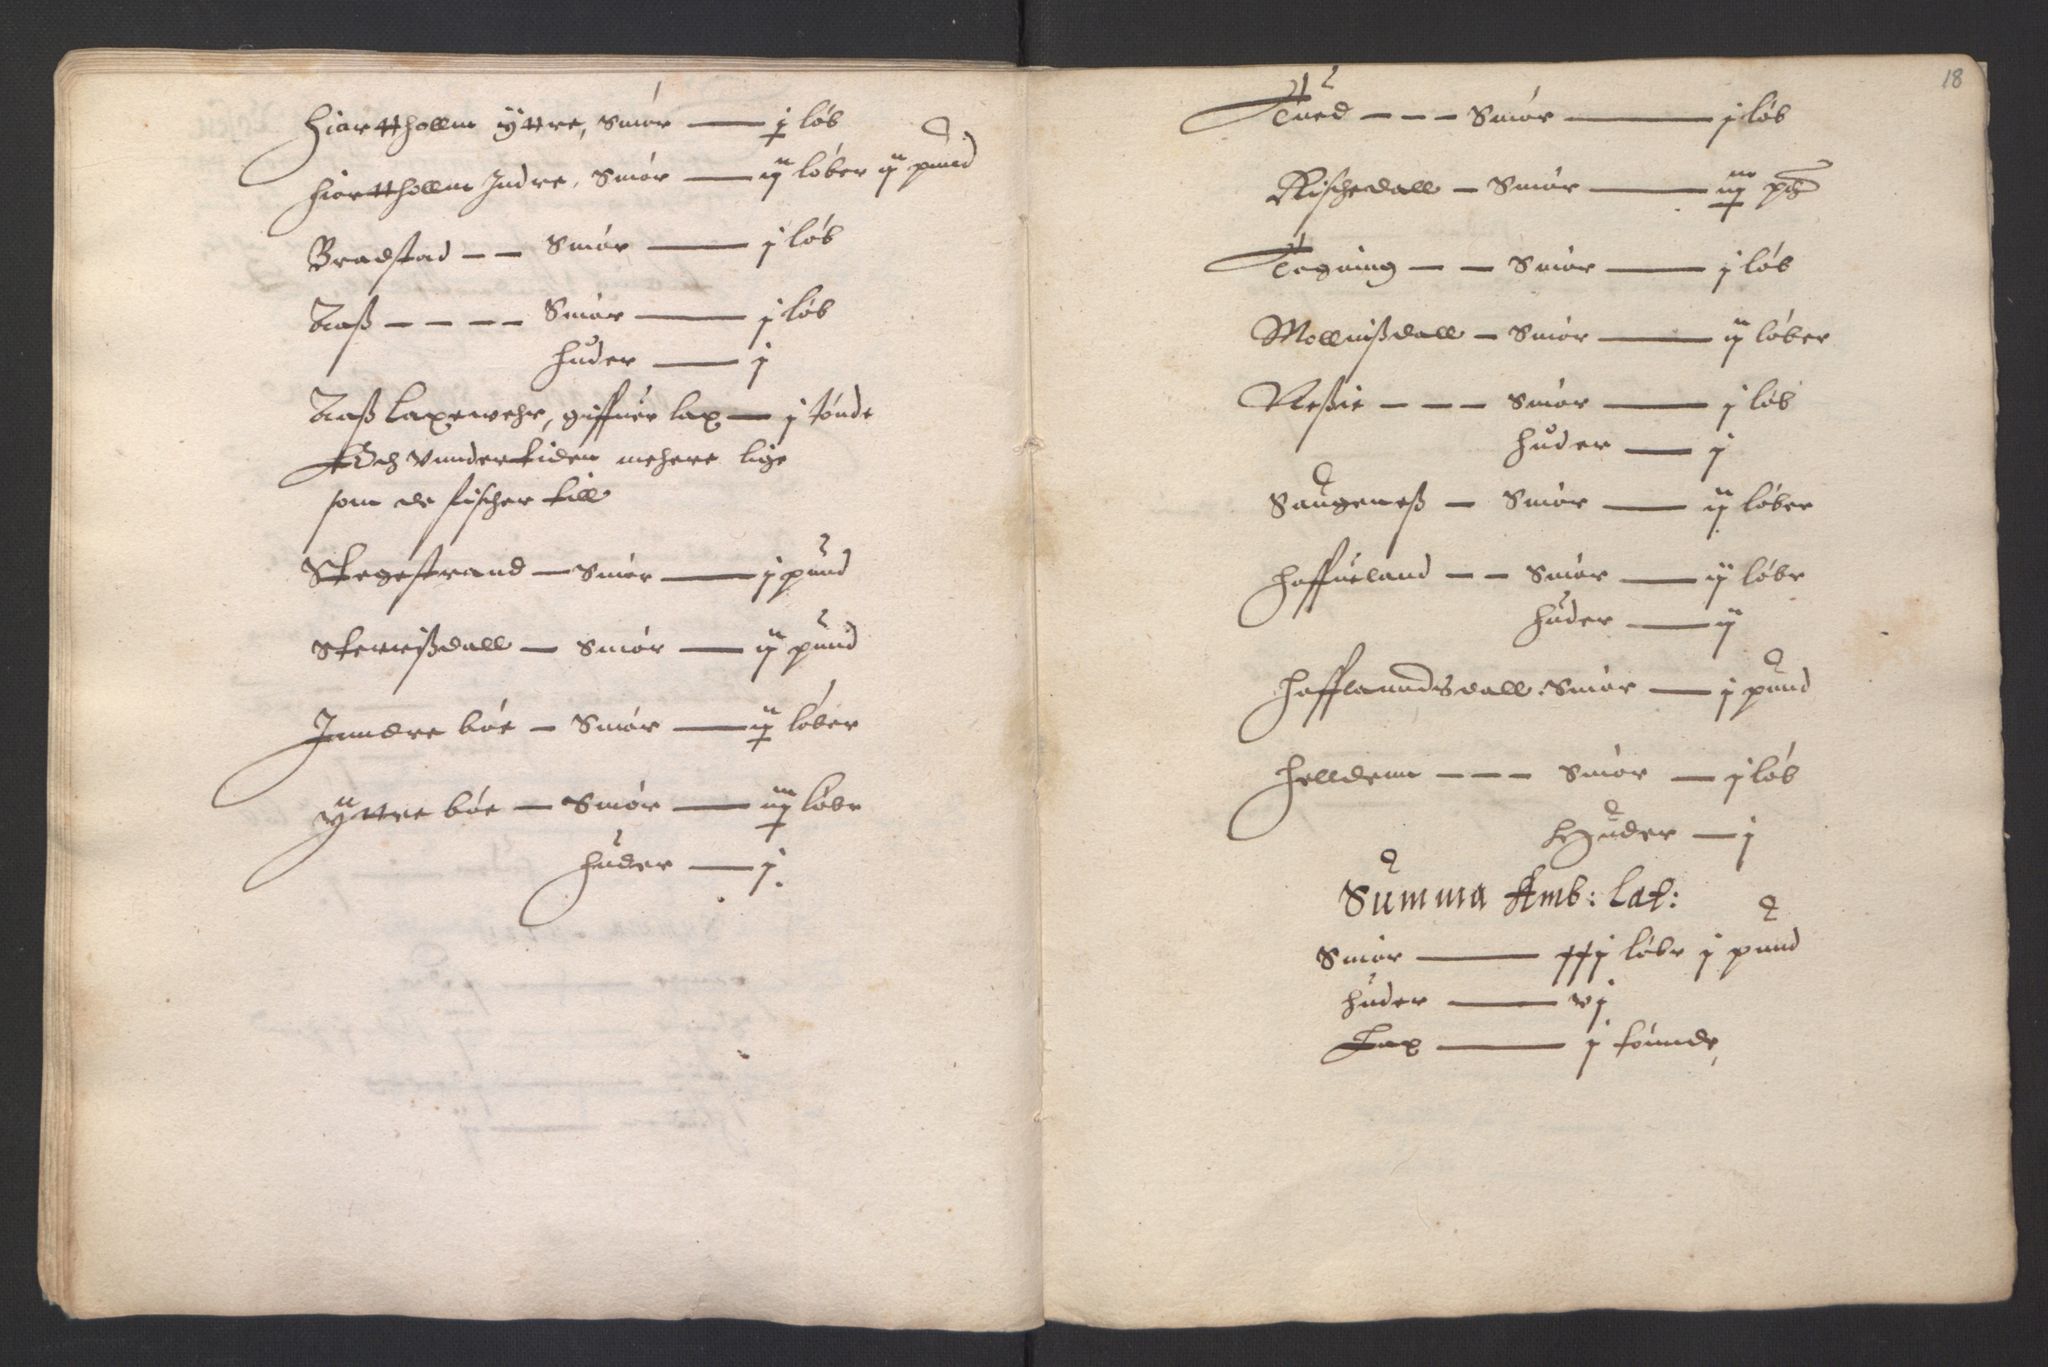 Hiortthollm ÿttre, Smör — j löb
Hiortthollm Indre, Smör — ij löber ij pund
Bradstad — — Smör — j löb
Aaß — — — — Smör — j löb
Huder — j
Aaß laxewehr, giffuer lax — j tönde
Och vnndertiden mehere lige
som de fischer till
Skegestrand — Smör — j pund
Skerrißdall — Smör — ij pund
Inndre böe — Smör — ij löber
ÿttre böe — Smör — iij löbr
Huder — j
18
Tued — — — Smör — j löb
Rischedall — Smör — iij pd
Tegning — — Smör — j löb
Mollnißdall — Smör — ij löber
Neßie — — — Smör — j löb
Huder — j
Saugeneß — Smör — ij löber
Haffueland — — Smör — ij löbr
Huder — ij
Hafflanndsdall Smör — j pund
Helldenn — — — Smör — j löb
Huder — j
Summa Amb: lat:
Smör — xxj löbr j pund
Huder — vj
Lax — j tönnde,